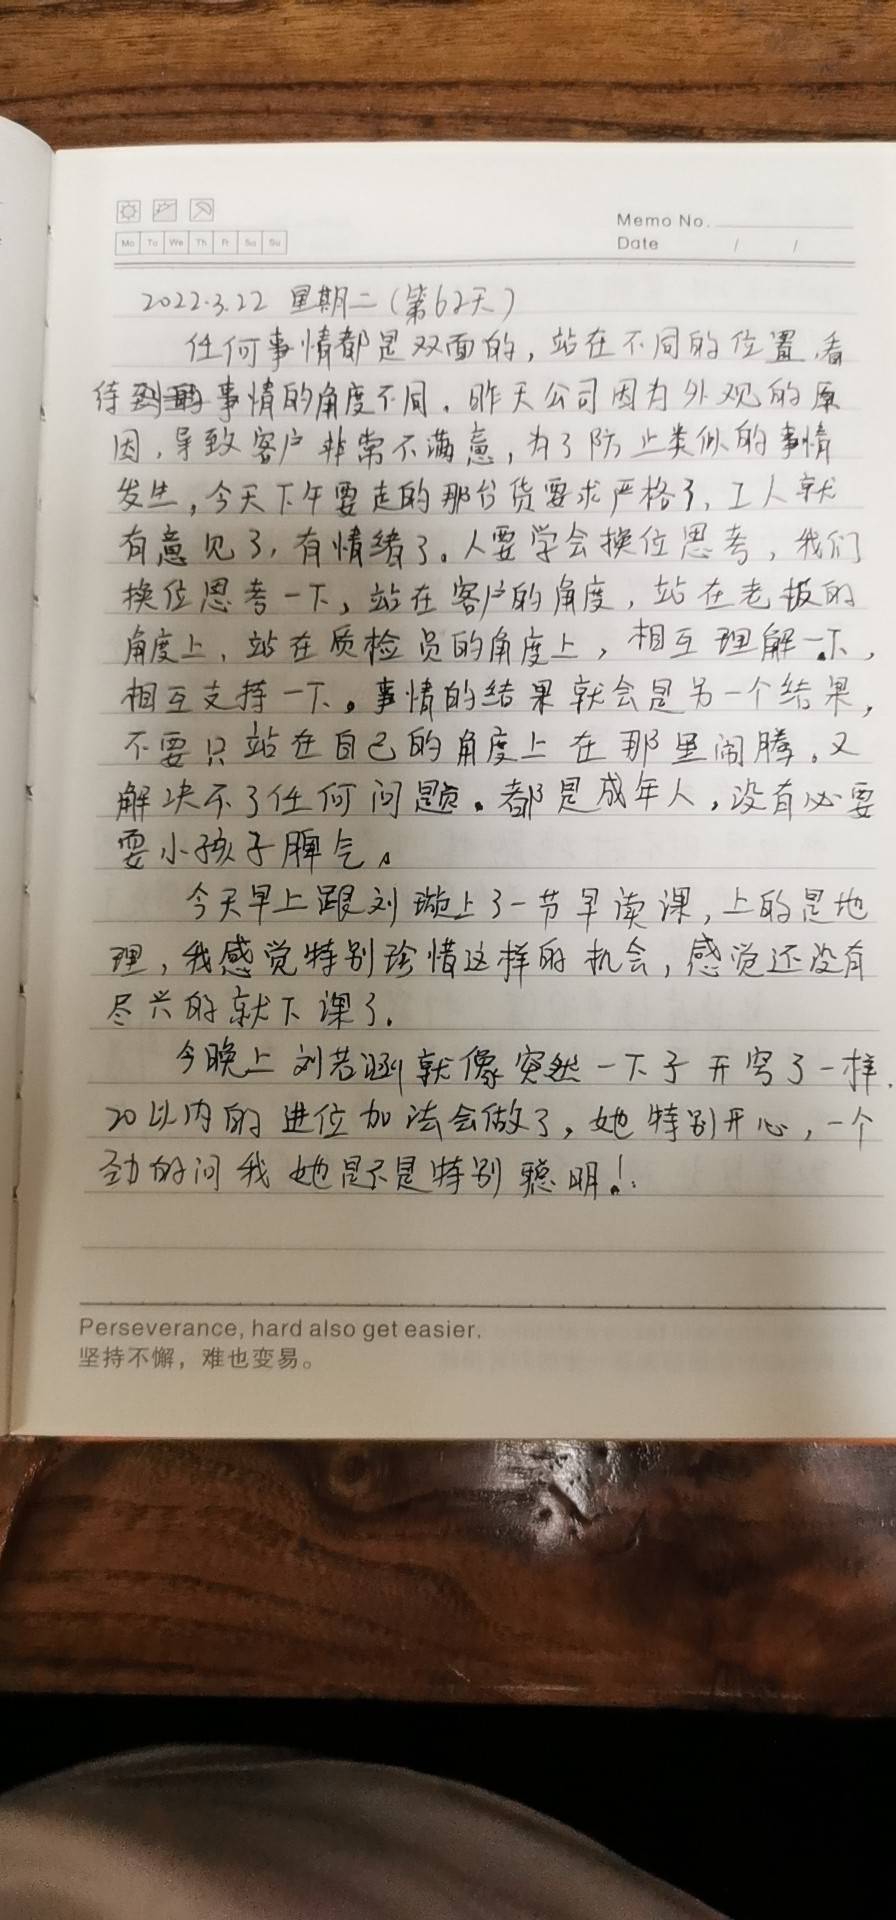 Memo No.
Mo Tu We Th Fr Sa Su
Date / /
2022.3.22 星期二(第62天)
任何事情都是双面的,站在不同的位置,看
待事情的角度不同。昨天公司因为外观的原
因,导致客户非常不满意,为了防止类似的事情
发生,今天下午要走的那台货要求严格了,工人就
有意见了,有情绪了。人要学会换位思考,我们
换位思考一下,站在客户的角度,站在老板的
角度上,站在质检员的角度上,相互理解一下,
相互支持一下。事情的结果就会是另一个结果,
不要只站在自己的角度上在那里闹腾,又
解决不了任何问题。都是成年人,没有必要
耍小孩子脾气。
今天早上跟刘璇上了一节早读课,上的是地
理,我感觉特别珍惜这样的机会,感觉还没有
尽兴的就下课了。
今晚上刘若涵就像突然一下子开窍了一样,
20以内的进位加法会做了,她特别开心,一个
劲的问我她是不是特别聪明!
Perseverance, hard also get easier.
坚持不懈,难也变易。